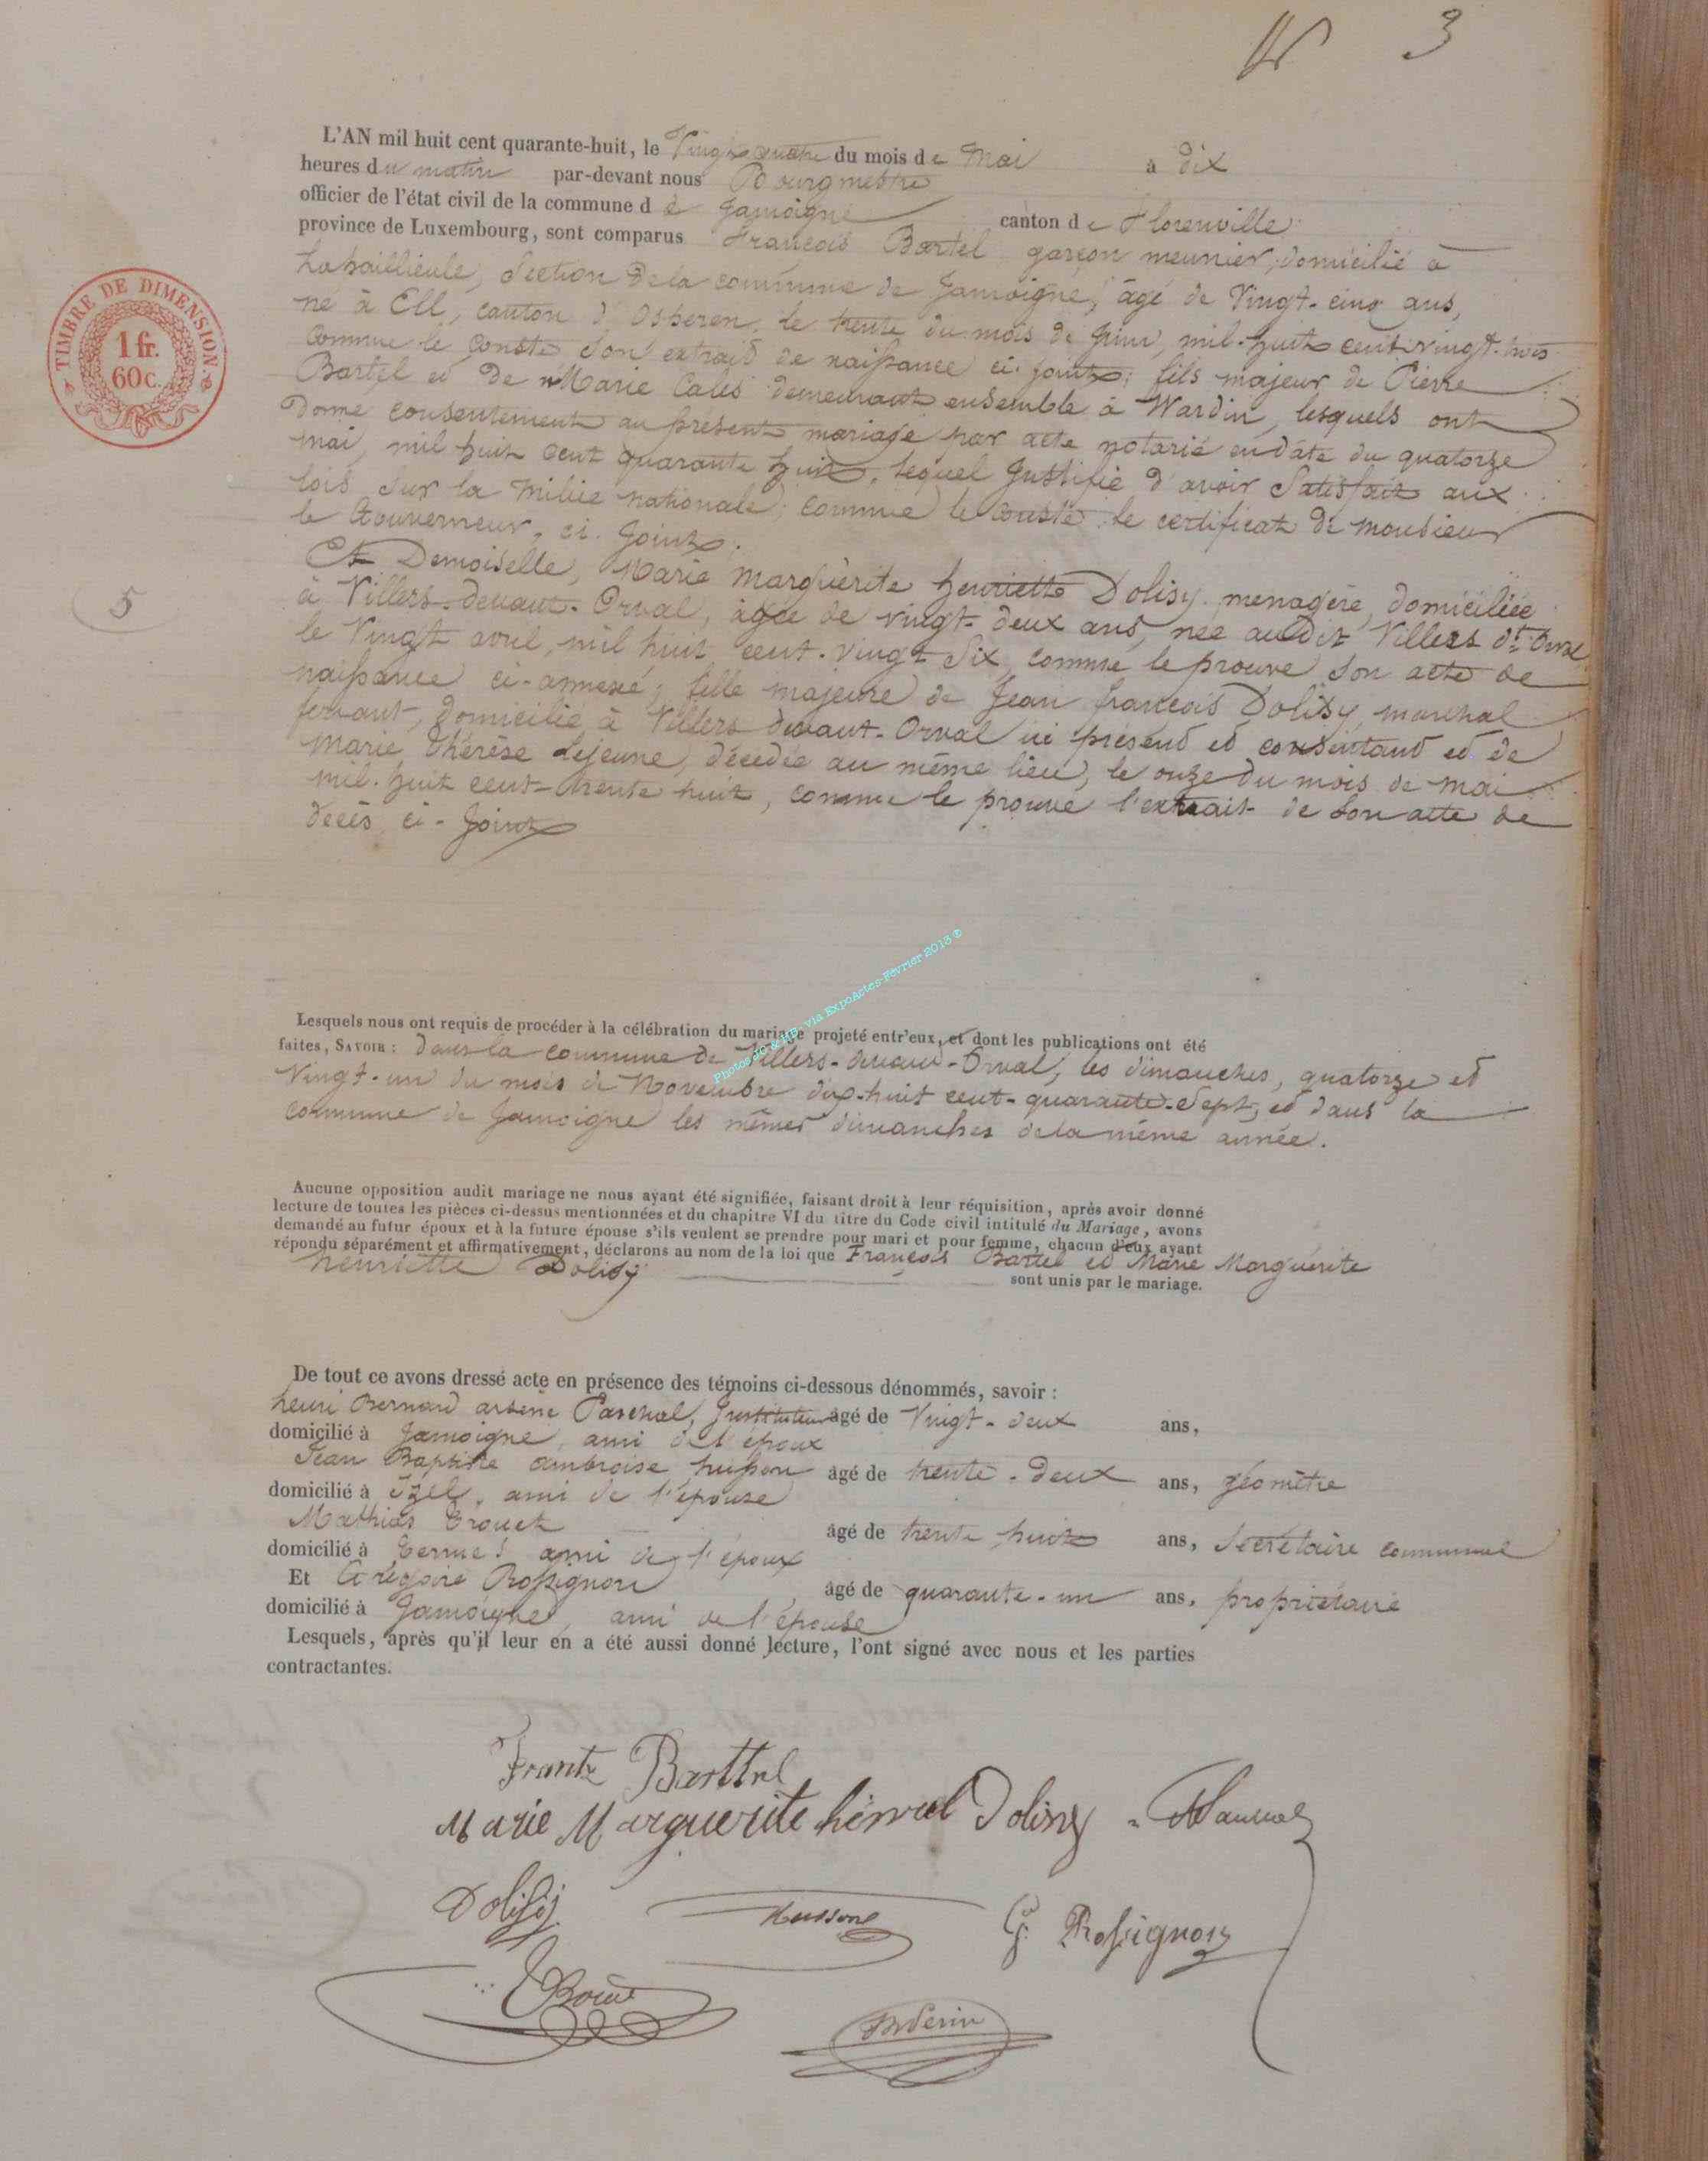 3
L'AN mil huit cent quarante-huit, le Vingt quatre du mois de Mai à dix
heures du matin par-devant nous Bourgmestre
officier de l'état civil de la commune de Jamoigne canton de Florenville
province de Luxembourg, sont comparus François Bartel garçon meunier, domicilié à
section de la commune de Jamoigne, âgé de Vingt-cinq ans,
né à Ell, canton d'Osperen, le trente du mois de Juin, mil-huit cent vingt-trois
comme le conste son extrait de naissance ci-joint; fils majeur de Pierre
Bartel et de Marie Calés demeurant ensemble à Wardin, lesquels ont
donné consentement au présent mariage par acte notarié en date du quatorze
mai, mil huit cent quarante huit, lequel justifie d'avoir satisfait aux
lois sur la milice nationale, comme le conste le certificat de monsieur
le Gouverneur, ci-joint.
Et Demoiselle, Marie Marguèrite henriette Dolisy ménagère, domiciliée
à Villers-devant-Orval, âgée de vingt-deux ans, née audit Villers dt Orval
le Vingt avril, mil huit cent-vingt Six, comme le prouve son acte de
naissance ci-annexé; fille majeure de Jean françois Dolisy, maréchal
ferrant, domicilié à Villers devant-Orval ici présent et consentant et de
Marie Thérèse Lejeune, décédée au même lieu, le onze du mois de mai
mil-huit cent-trente huit, comme le prouve l'extrait de son acte de
décès, ci-joint
TIMBRE DE DIMENSION.
1 fr.
60 c.
5
Photos JC & HB. via ExpoActes-Février 2013 ®
Lesquels nous ont requis de procéder à la célébration du mariage projeté entr'eux, et dont les publications ont été
faites, SAVOIR : dans la commune de Villers-devant-Orval, les dimanches, quatorze et
Vingt-un du mois de Novembre dix-huit cent-quarante-Sept, et dans la
commune de Jamoigne les mêmes dimanches de la même année.
Aucune opposition audit mariage ne nous ayant été signifiée, faisant droit à leur réquisition, après avoir donné
lecture de toutes les pièces ci-dessus mentionnées et du chapitre VI du titre du Code civil intitulé du Mariage, avons
demandé au futur époux et à la future épouse s'ils veulent se prendre pour mari et pour femme, chacun d'eux ayant
répondu séparément et affirmativement, déclarons au nom de la loi que François Bartel et Marie Marguérite
henriette Dolisy sont unis par le mariage.
De tout ce avons dressé acte en présence des témoins ci-dessous dénommés, savoir :
henri Bernard arsène Paschal, Instituteur âgé de Vingt-deux ans,
domicilié à Jamoigne, ami de l'époux
Jean Baptiste ambroise husson âgé de trente-deux ans, géomètre
domicilié à Izel, ami de l'épouse
Mathias Crouet âgé de trente huit ans, Secrétaire communal
domicilié à Termes ami de l'époux
Et Grégoire Rossignon âgé de quarante-un ans, propriétaire
domicilié à Jamoigne, ami de l'épouse
Lesquels, après qu'il leur en a été aussi donné lecture, l'ont signé avec nous et les parties
contractantes.
Frantz Barttel
Marie Marguerite Dolisy
Dolisy Hussone G. Rossignon